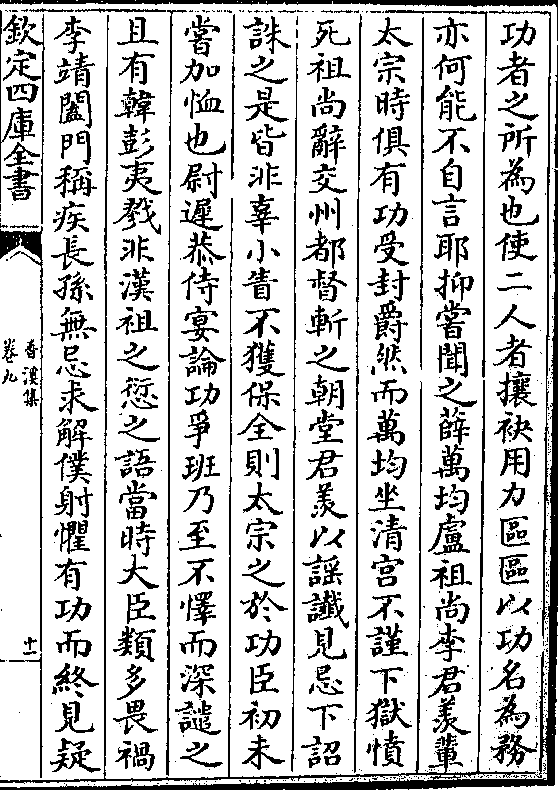 功者之所為也使二人者攘袂用力區區以功名為務
亦何能不自言耶抑嘗聞之薛萬均盧祖尚李君羨輩
太宗時俱有功受封爵然而萬均坐清宫不謹下獄憤
死祖尚辭交州都督斬之朝堂君羨以謡讖見忌下詔
誅之是皆非辜小眚不獲保全則太宗之於功臣初未
嘗加恤也尉遲恭侍宴論功爭班乃至不懌而深譴之
且有韓彭夷戮非漢祖之愆之語當時大臣類多畏禍
李靖闔門稱疾長孫無忌求解僕射懼有功而終見疑
欽定四庫全書
香溪集
卷九
十一